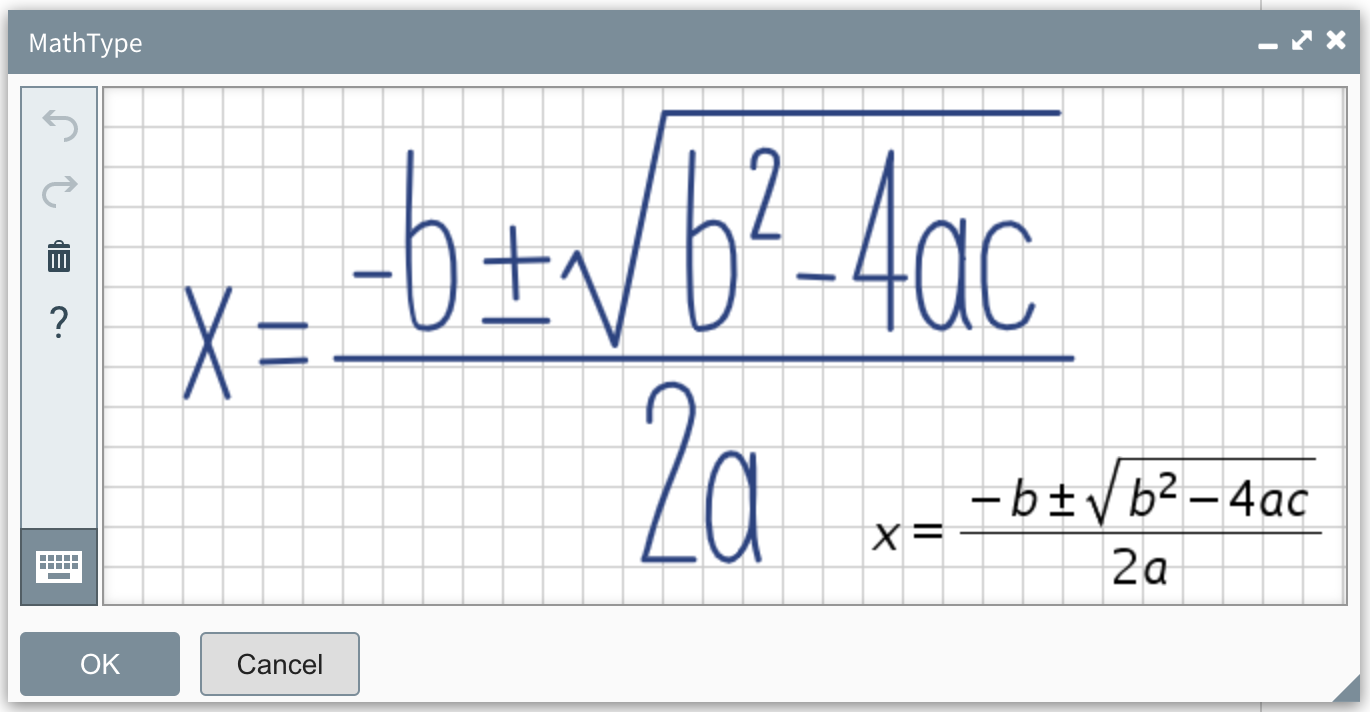 MathType
?
x = (-b ± √(b² - 4ac)) / 2a
x = (-b ± √(b² - 4ac)) / 2a
OK Cancel